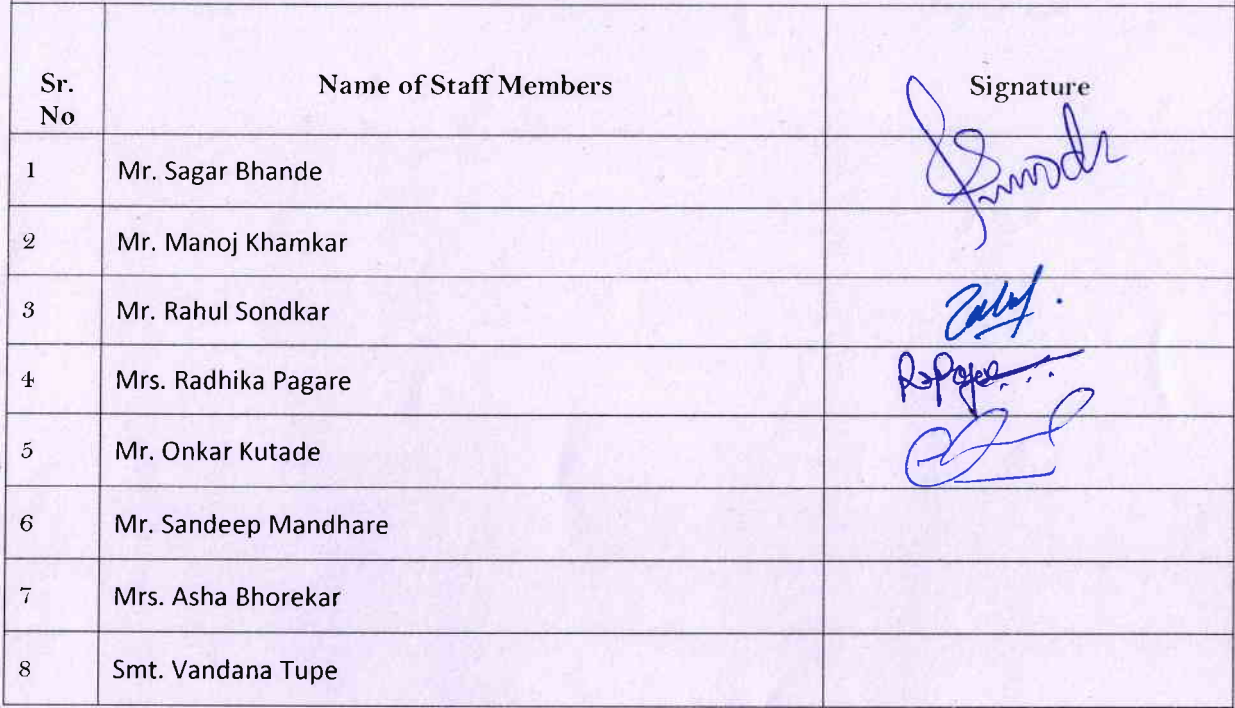 Sr. No Name of Staff Members Signature
1 Mr. Sagar Bhande
2 Mr. Manoj Khamkar
3 Mr. Rahul Sondkar
4 Mrs. Radhika Pagare
5 Mr. Onkar Kutade
6 Mr. Sandeep Mandhare
7 Mrs. Asha Bhorekar
8 Smt. Vandana Tupe